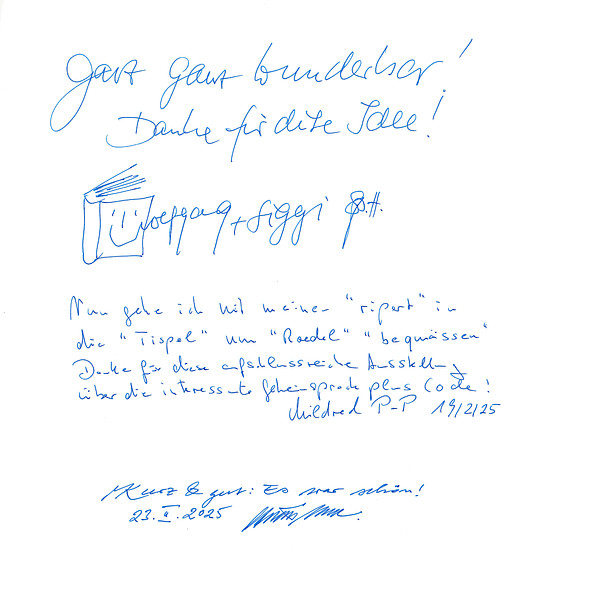 Ganz ganz wunderbar!
Danke für diese Idee!
Wolfgang + Siggi
Nun gehe ich mit meiner "ripart" in
die "Tispel" um "Roedel" "beqmässen"
Danke für diese aufschlussreiche Ausstellung
über die interessante Geheimsprache plus Code!
Mildred P-P 19/2/25
Kurz & gut: Es war schön!
23.II.2025